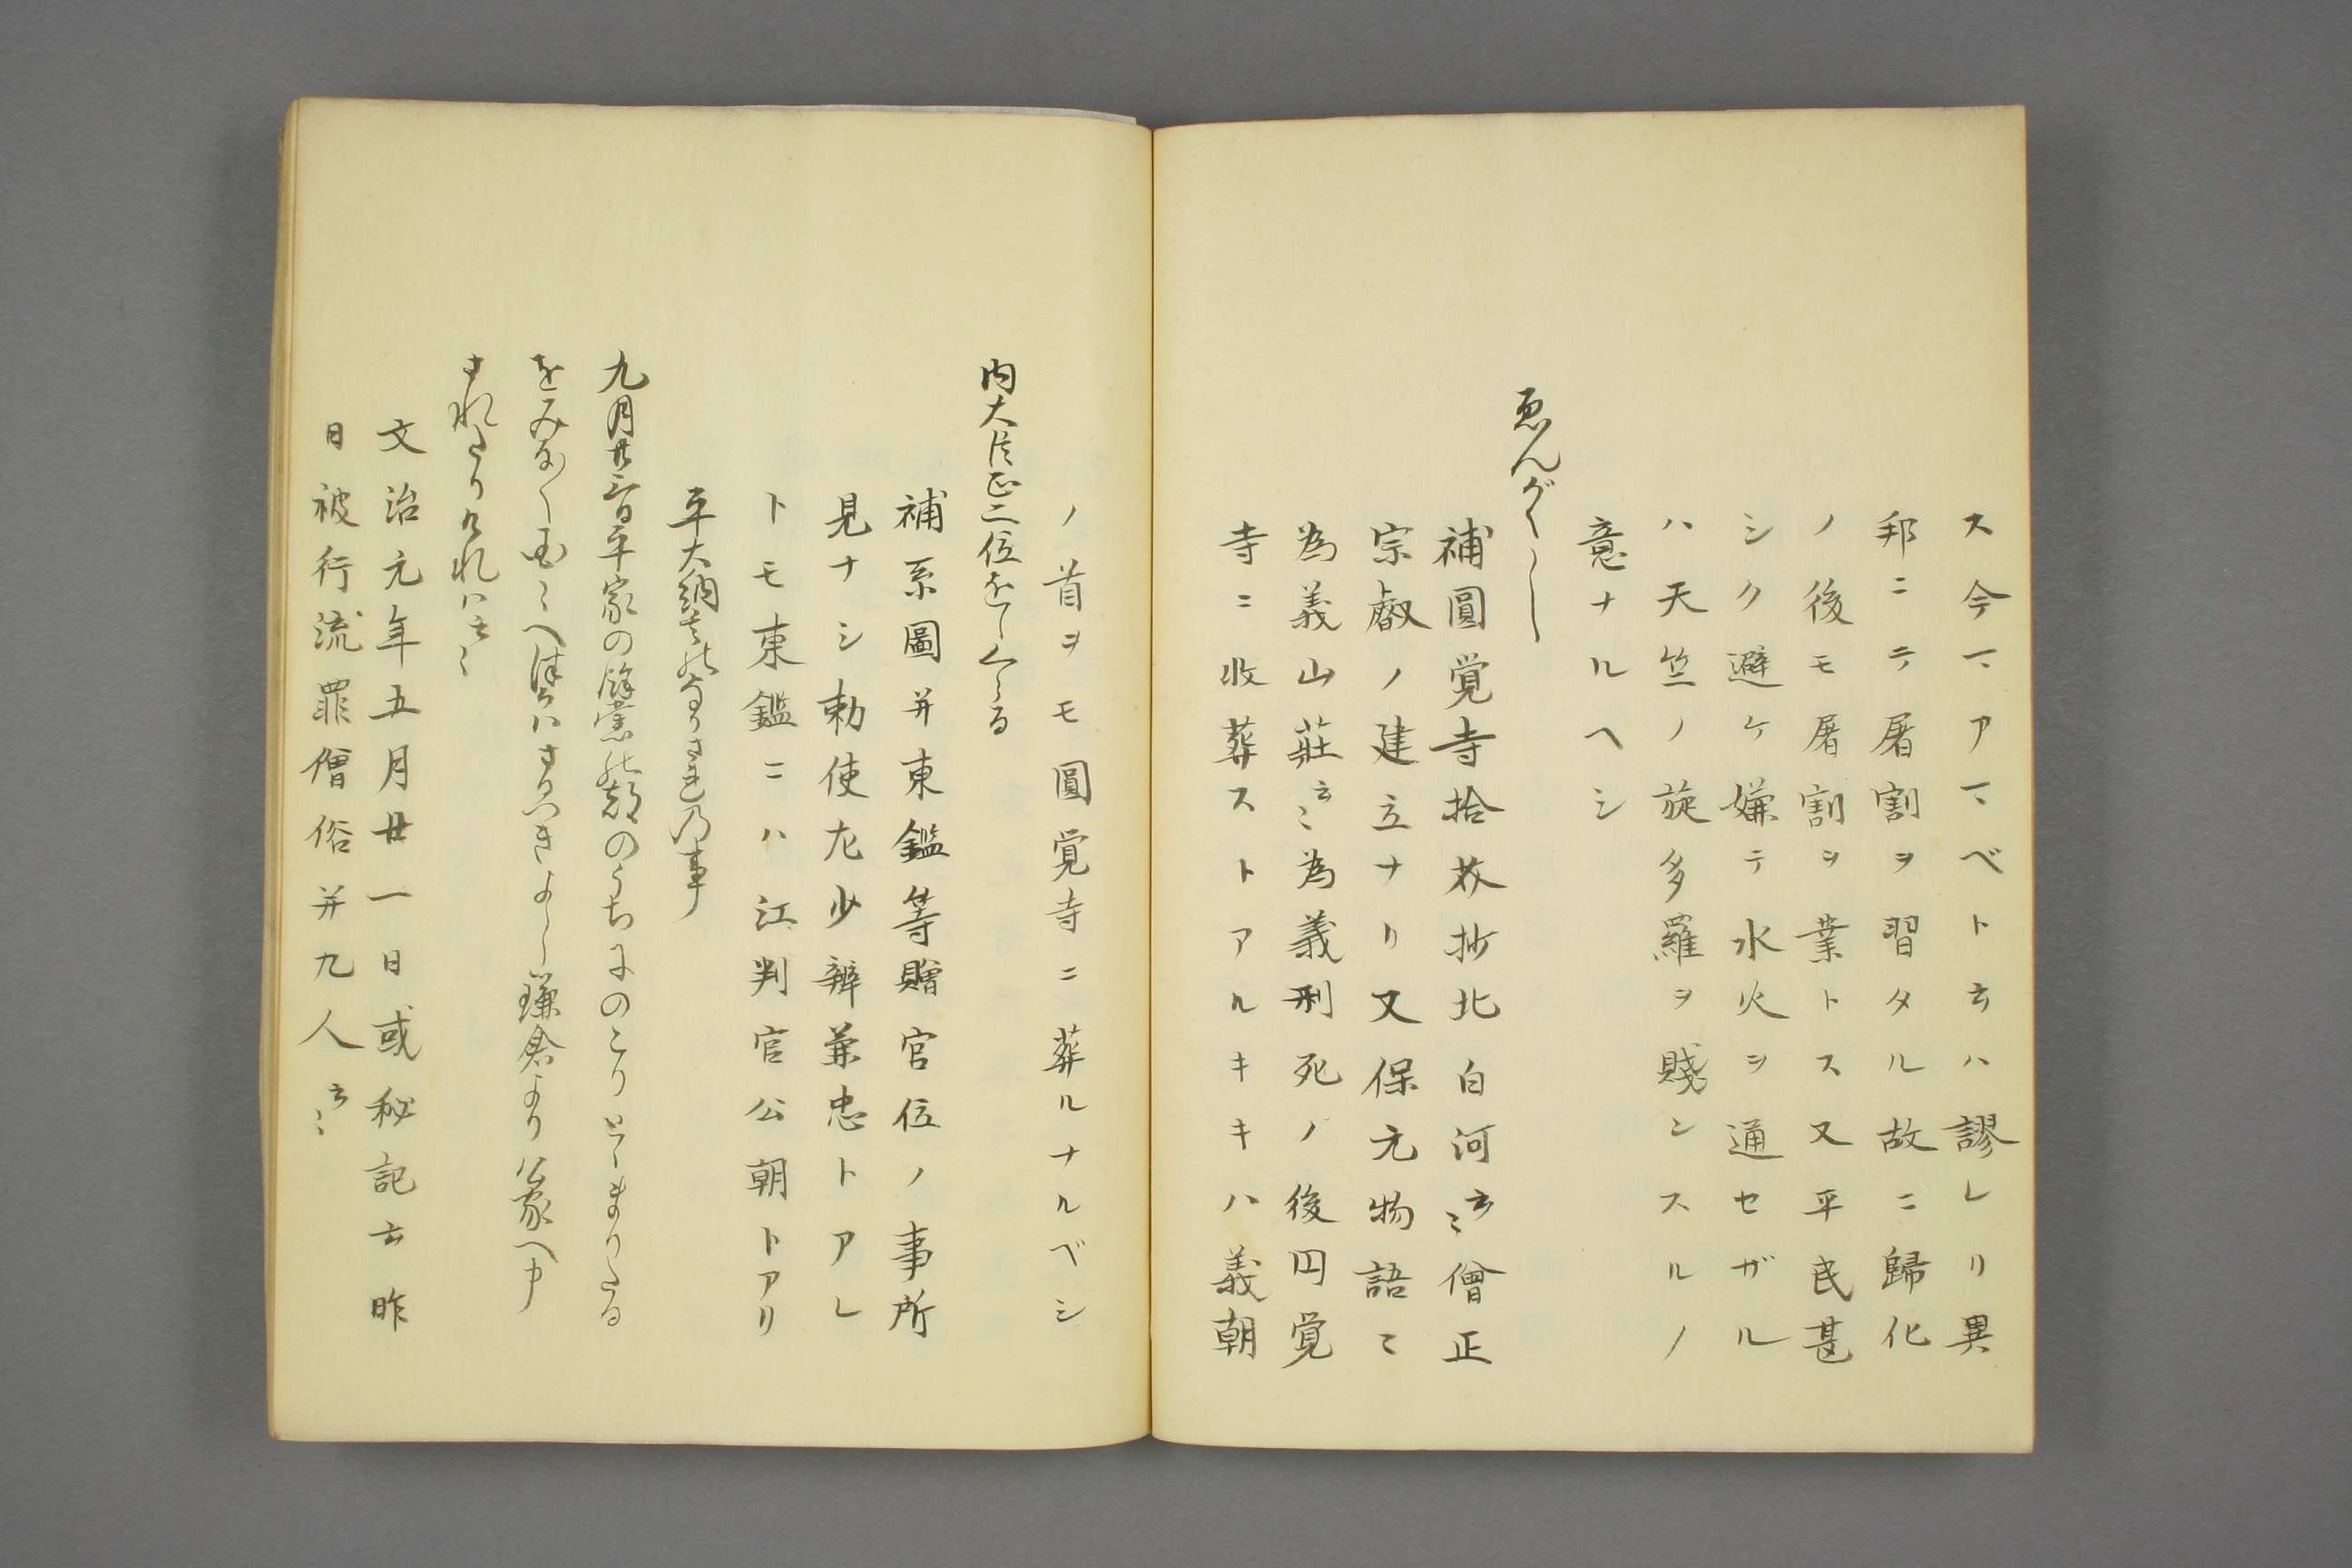 ス今マアマベト云ハ謬レリ異
邦ニテ屠割ヲ習タル故ニ歸化
ノ後モ屠割ヲ業トス又平民甚
シク避ケ嫌テ水火ヲ通セザル
ハ天竺ノ旃多羅ヲ賤シスルノ
意ナルヘシ
ゑんがくし
補圓覚寺拾芥抄北白河云〻僧正
宗叡ノ建立ナリ又保元物語ニ
為義山莊云〻為義刑死ノ後円覚
寺ニ收葬ストアルキキハ義朝
ノ首ヲモ圓覚寺ニ葬ルナルベシ
内大臣正二位をおくらる
補系圖并東鑑等贈官位ノ事所
見ナシ勅使左少辨兼忠トアレ
トモ東鑑ニハ江判官公朝トアリ
平大納言のながされの事
九月廿三日平家の餘黨の都のうちにのこりとゞまりたる
をみなくに〻へつかはさるべきよし鎌倉より公家へ申
されたりければ云〻
文治元年五月廿一日或秘記云昨
日被行流罪僧俗并九人云〻